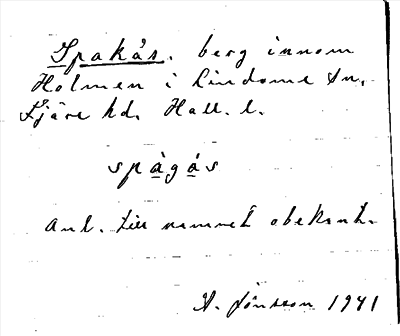 Spakås. berg innom
Holmen i Lindome sn.
Fjäre hd. Hall. l.
spàgás
Anl. till namnet obekant.
A. Jönsson 1941